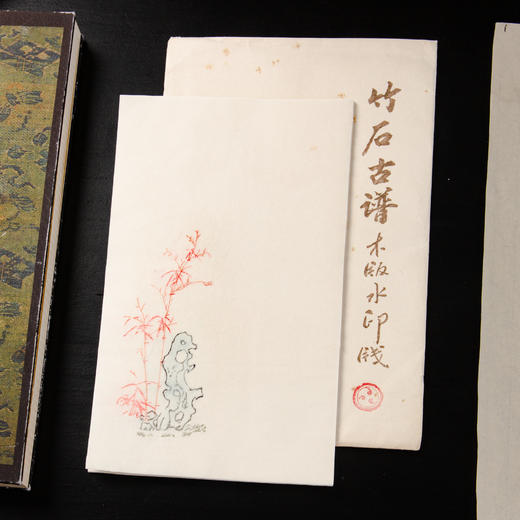 竹石古谱木版水印笺